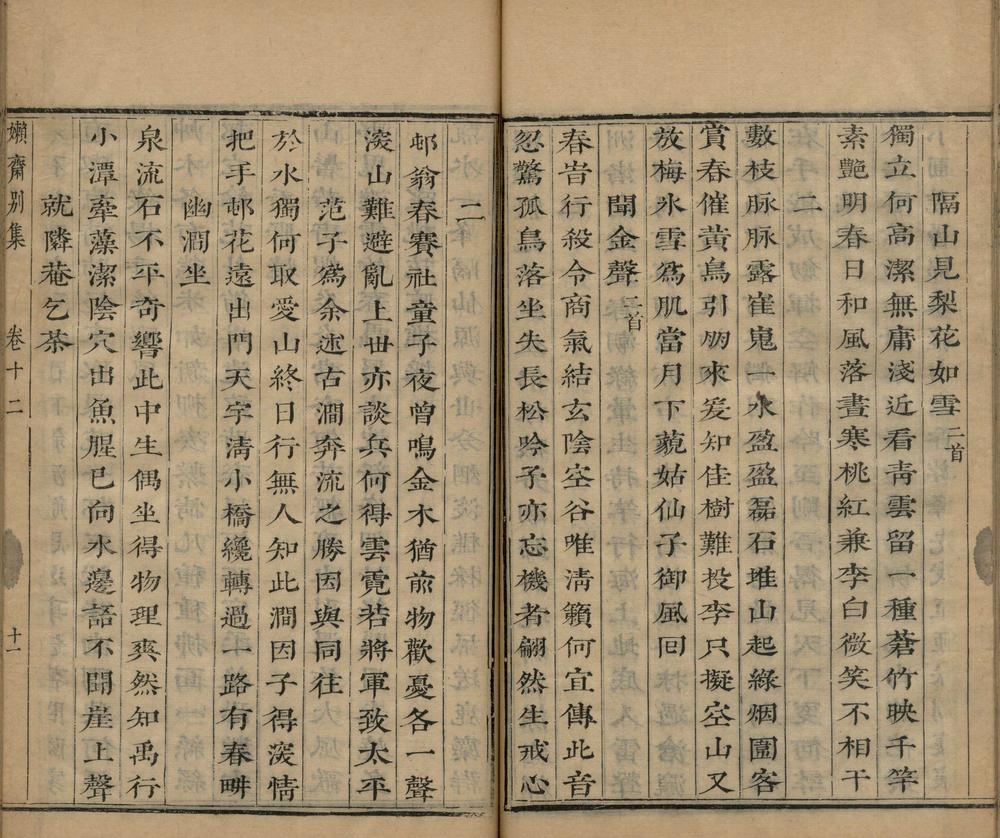 隔山見梨花如雪二首
獨立何高潔無庸淺近看青雲留一種蒼竹映千竿
素艷明春日和風落晝寒桃紅兼李白微笑不相干
二
數枝脉脉露崔嵬一水盈盈磊石堆山起綠烟圍客
賞春催黃鳥引朋來爰知佳樹難投李只擬空山又
放梅氷雪爲肌當月下藐姑仙子御風回
聞金聲二首
春旹行殺令商氣結玄陰空谷唯淸籟何宜傳此音
忽驚孤鳥落坐失長松吟予亦忘機者翩然生戒心
二
邨翁春賽社童子夜曾鳴金木猶前物歡憂各一聲
深山難避亂上世亦談兵何得雲霓若將軍致太平
范子爲余述古澗奔流之勝因與同往
於水獨何取愛山終日行無人知此澗因子得深情
把手邨花遠出門天宇淸小橋纔轉過一路有春畊
幽澗坐
泉流石不平奇響此中生偶坐得物理爽然知禹行
小潭牽藻潔陰穴出魚腥已向水邊語不聞崖上聲
就隣菴乞茶
嬾齋别集
卷十二
十一